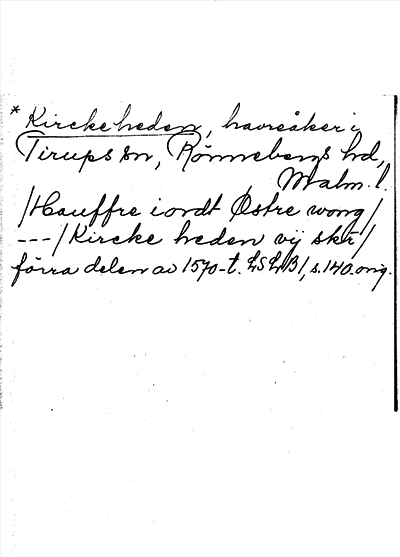 * Kircke heden, havreåker i
Tirups sn, Rönnebergs hd,
Malm. l.
/Hauffre iordt Østre wong/
---/Kircke heden vij skr/
förra delen av 1570-t. LSLB1, s. 140. orig.